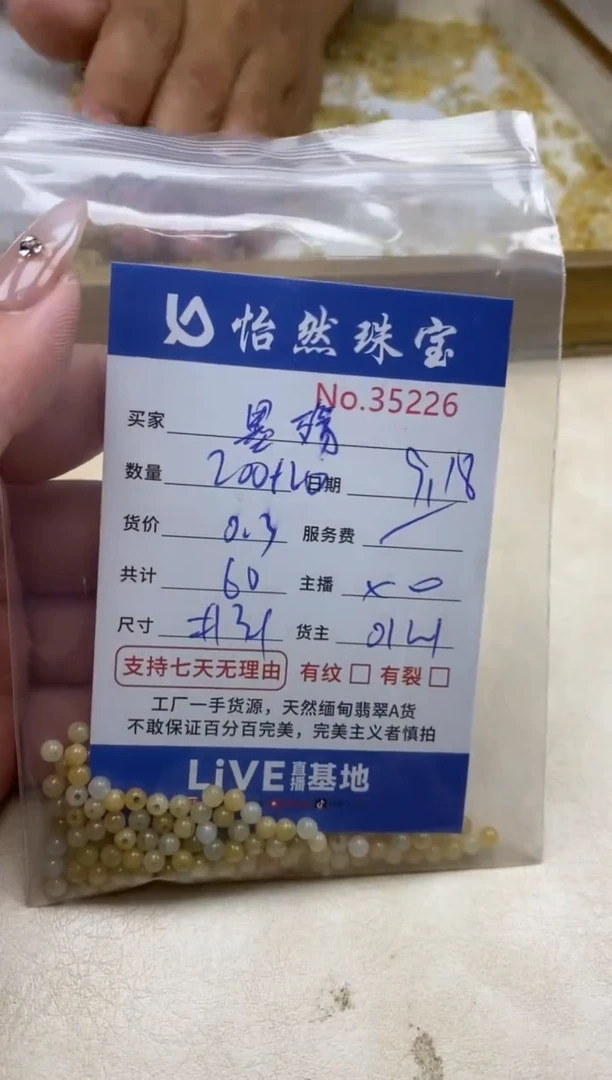 怡然珠宝
No.35226
买家
数量 200+20 日期 9.18
货价 0.3 服务费
共计 60 主播
尺寸 货主
支持七天无理由 有纹 □ 有裂 □
工厂一手货源，天然缅甸翡翠A货
不敢保证百分百完美，完美主义者慎拍
LiVE直播基地